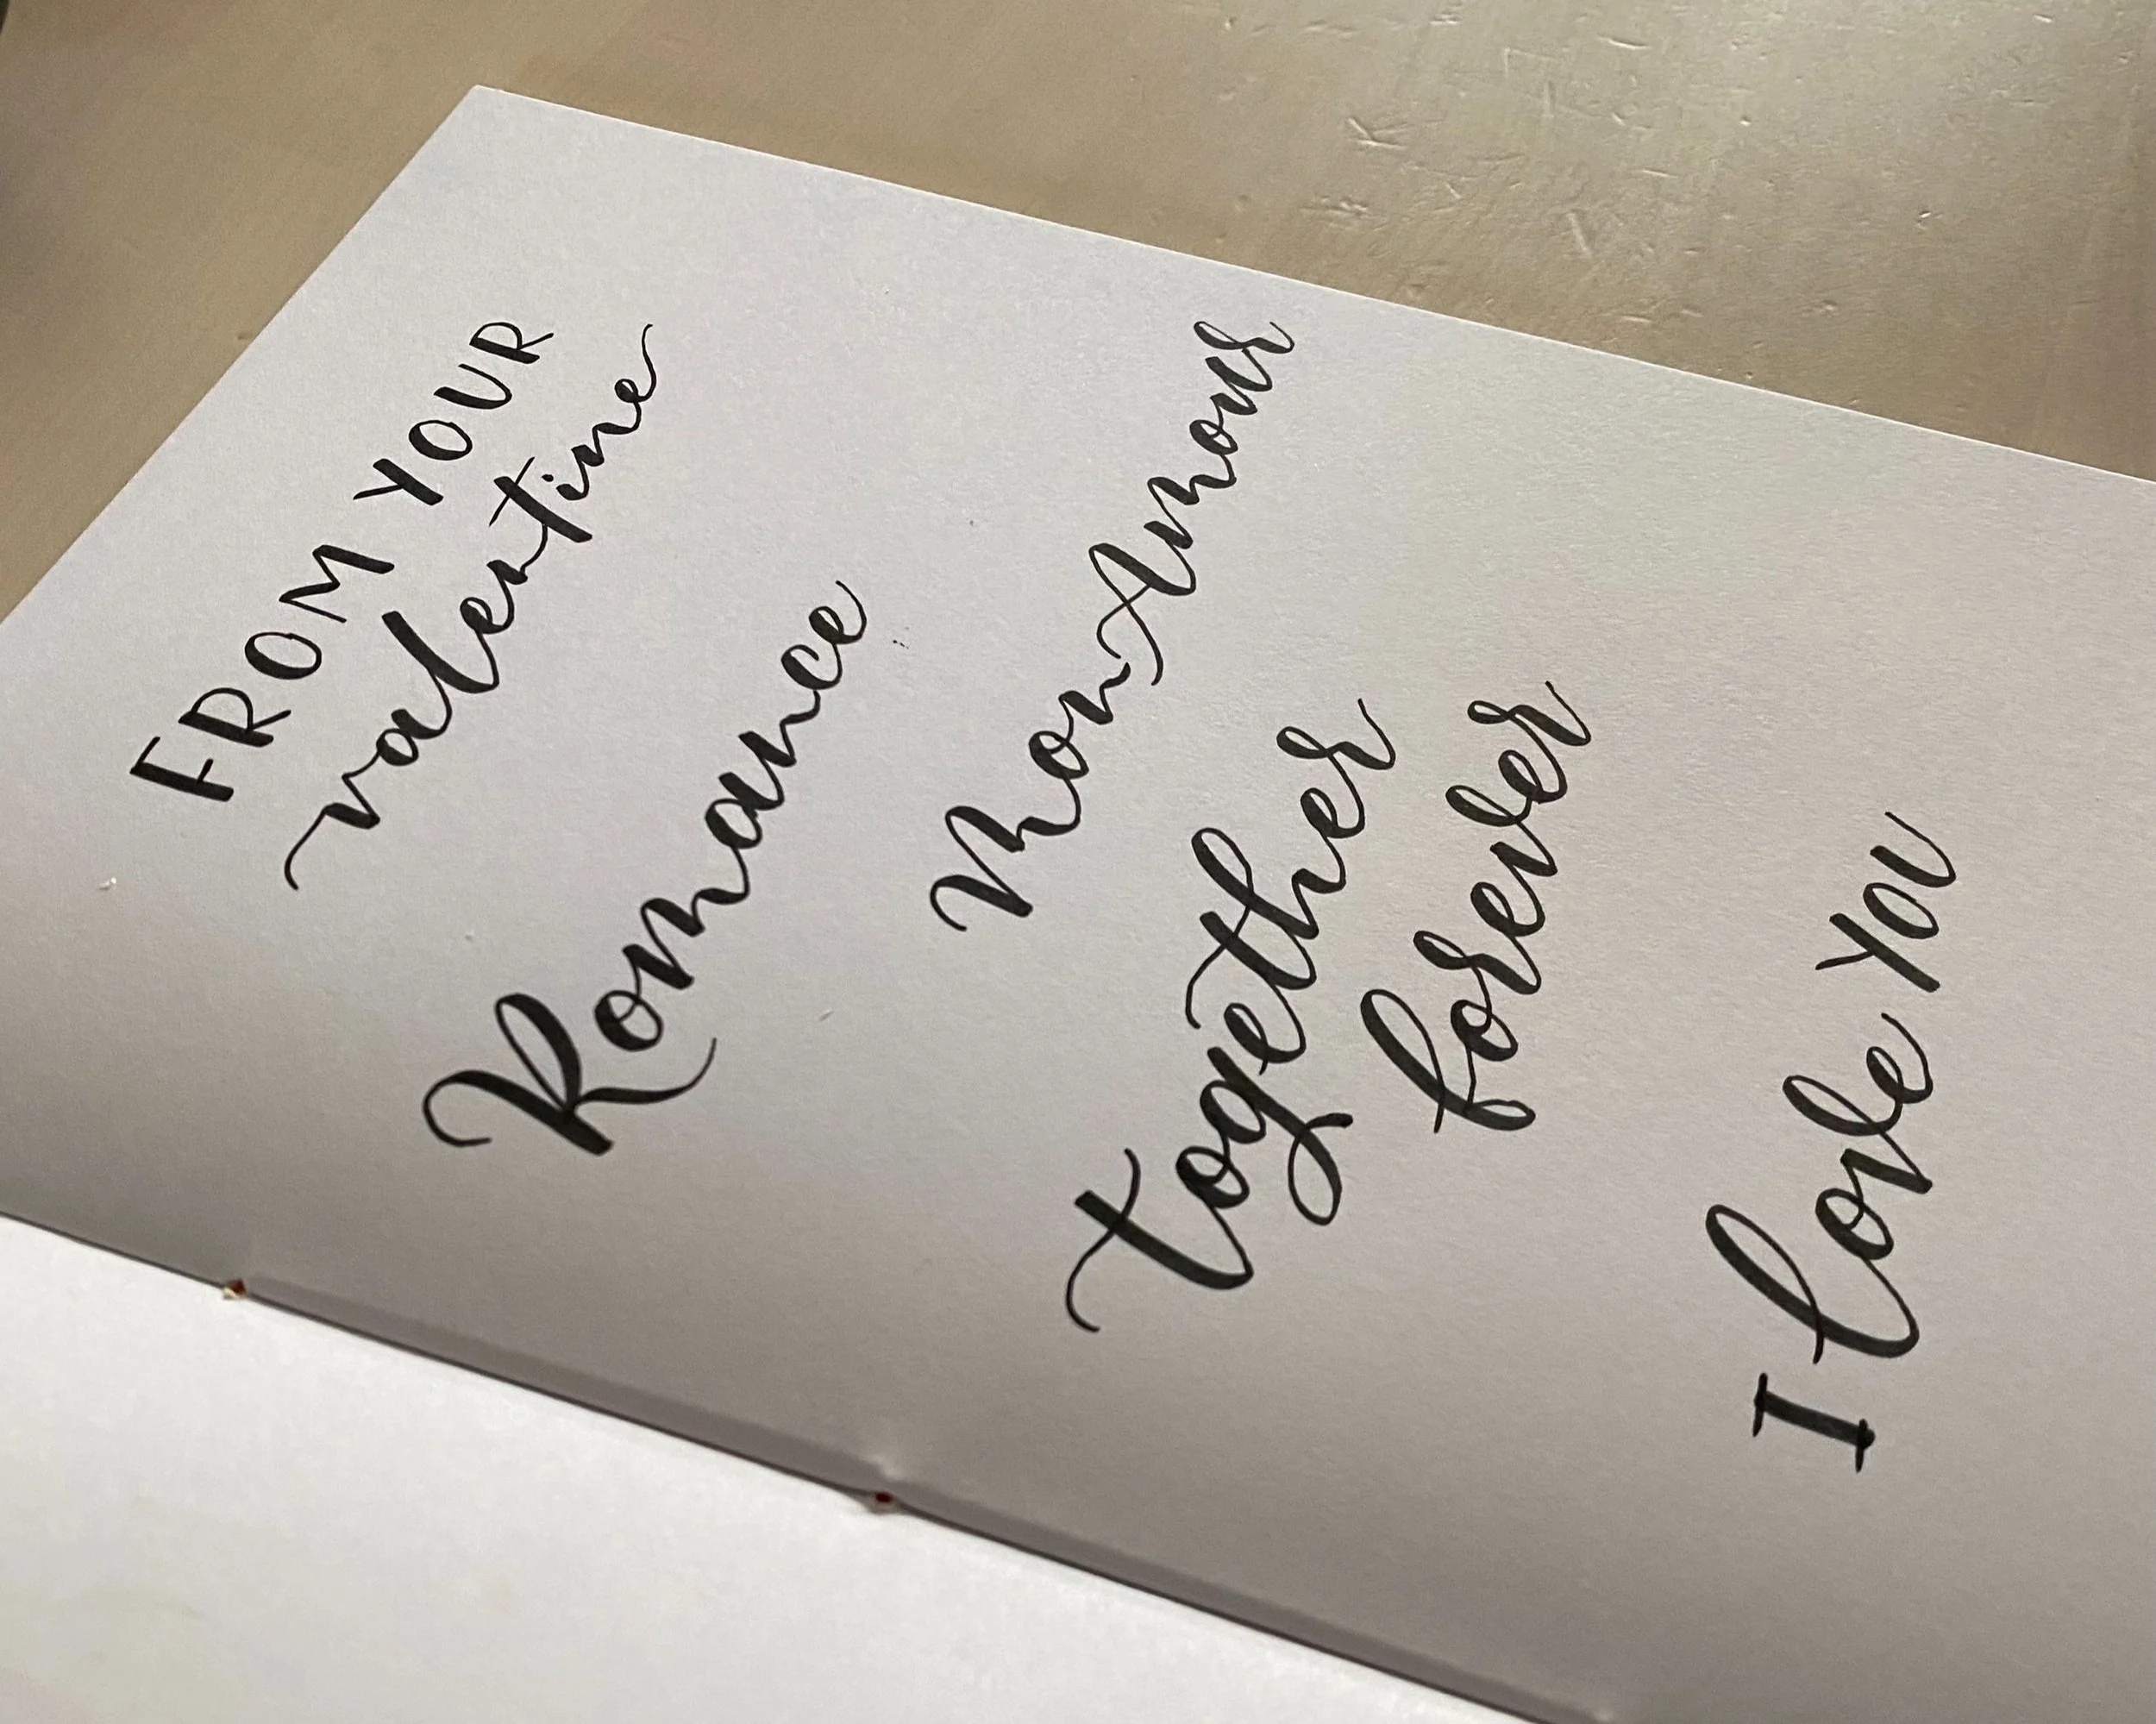 FROM YOUR
valentine
Romance
Mon Amour
together
forever
I love you